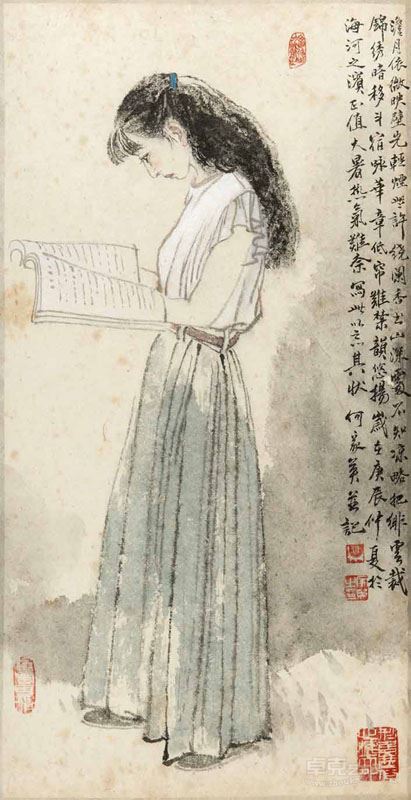 澹月依微映壁光輕煙些許繞闌香书山深處不知涼略把緋雲裁
錦綉暗移斗宿詠華章低帘難禁韻悠揚歲在庚辰仲夏於
海河之濱正值大暑热氣難奈寫此以志其狀 何家英並記